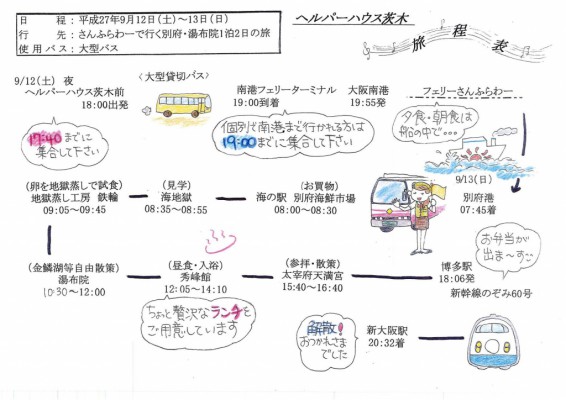 日　　程：平成27年9月12日(土)～13日(日)
行　　先：さんふらわーで行く別府・湯布院1泊2日の旅
使用バス：大型バス
ヘルパーハウス茨木
旅程表
9/12(土) 夜
ヘルパーハウス茨木前
18:00出発
〈大型貸切バス〉
南港フェリーターミナル
19:00到着
大阪南港
19:55発
フェリーさんふらわー
17:40までに
集合して下さい
個別で南港まで行かれる方は
19:00までに集合して下さい
夕食・朝食は
船の中で・・・
9/13(日)
別府港
07:45着
(お買物)
海の駅 別府海鮮市場
08:00～08:30
(見学)
海地獄
08:35～08:55
(卵を地獄蒸しで試食)
地獄蒸し工房 鉄輪
09:05～09:45
(金鱗湖等自由散策)
湯布院
10:30～12:00
(昼食・入浴)
秀峰館
12:05～14:10
(参拝・散策)
太宰府天満宮
15:40～16:40
博多駅
18:06発
新幹線のぞみ60号
お弁当が
出ま～すご
ちょっと贅沢なランチを
ご用意しています
解散!
おつかれさま
でした
新大阪駅
20:32着